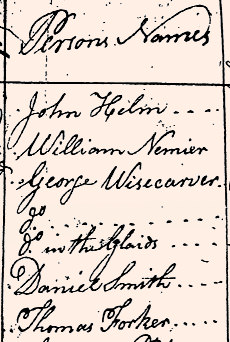 Persons Names
John Helm ....
William Nemier
George Wisecarver.
do .............
do in the Glaids ....
Daniel Smith ....
Thomas Forker.....